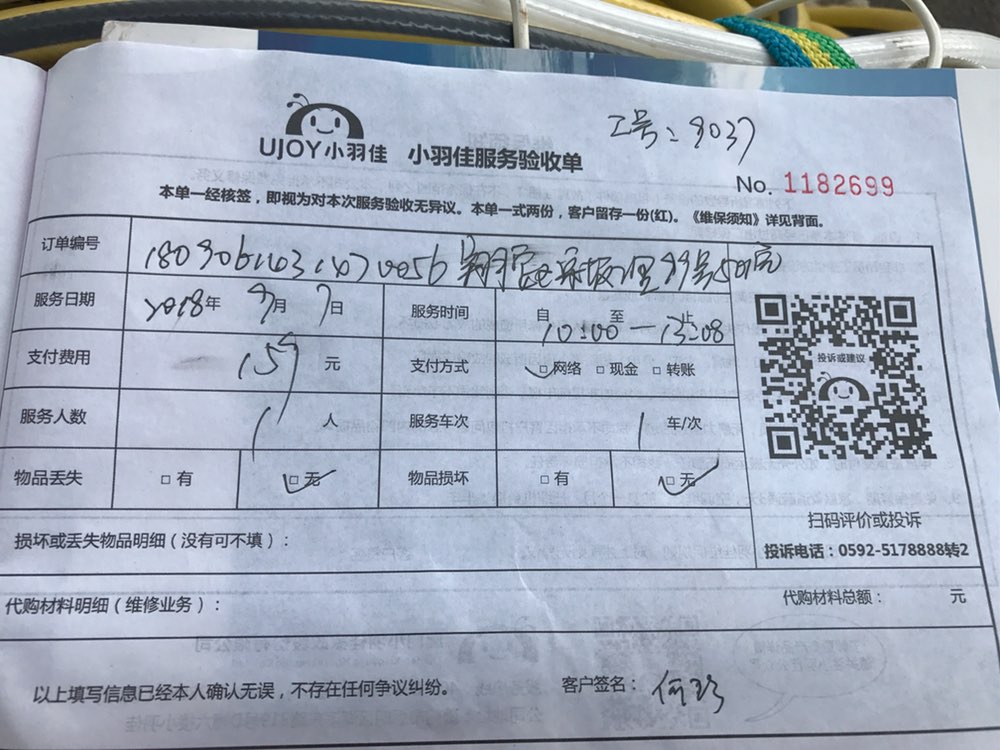 工号：9037
UJOY小羽佳 小羽佳服务验收单
No. 1182699
本单一经核签，即视为对本次服务验收无异议。本单一式两份，客户留存一份(红)。《维保须知》详见背面。
订单编号
服务日期 2018年 9月 7日 服务时间 自 至 止 10:00一13:08
支付费用 159 元 支付方式 □网络 □现金 □转账
服务人数 1 人 服务车次 1 车/次
物品丢失 □有 □无 物品损坏 □有 □无
投诉或建议
扫码评价或投诉
投诉电话：0592-5178888转2
损坏或丢失物品明细（没有可不填）：
代购材料明细（维修业务）： 代购材料总额： 元
以上填写信息已经本人确认无误，不存在任何争议纠纷。 客户签名：